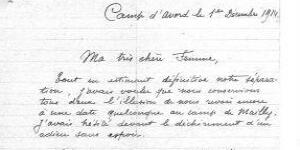 Camp d'Avord le 1er Décembre 1914.
Ma très chère Femme,
Tout en estimant définitive notre sépara-
tion, j'avais voulu que nous conservions
tous deux l'illusion de nous revoir encore
à une date quelconque au camp de Mailly.
J'avais hésité devant le déchirement d'un
adieu sans espoir.